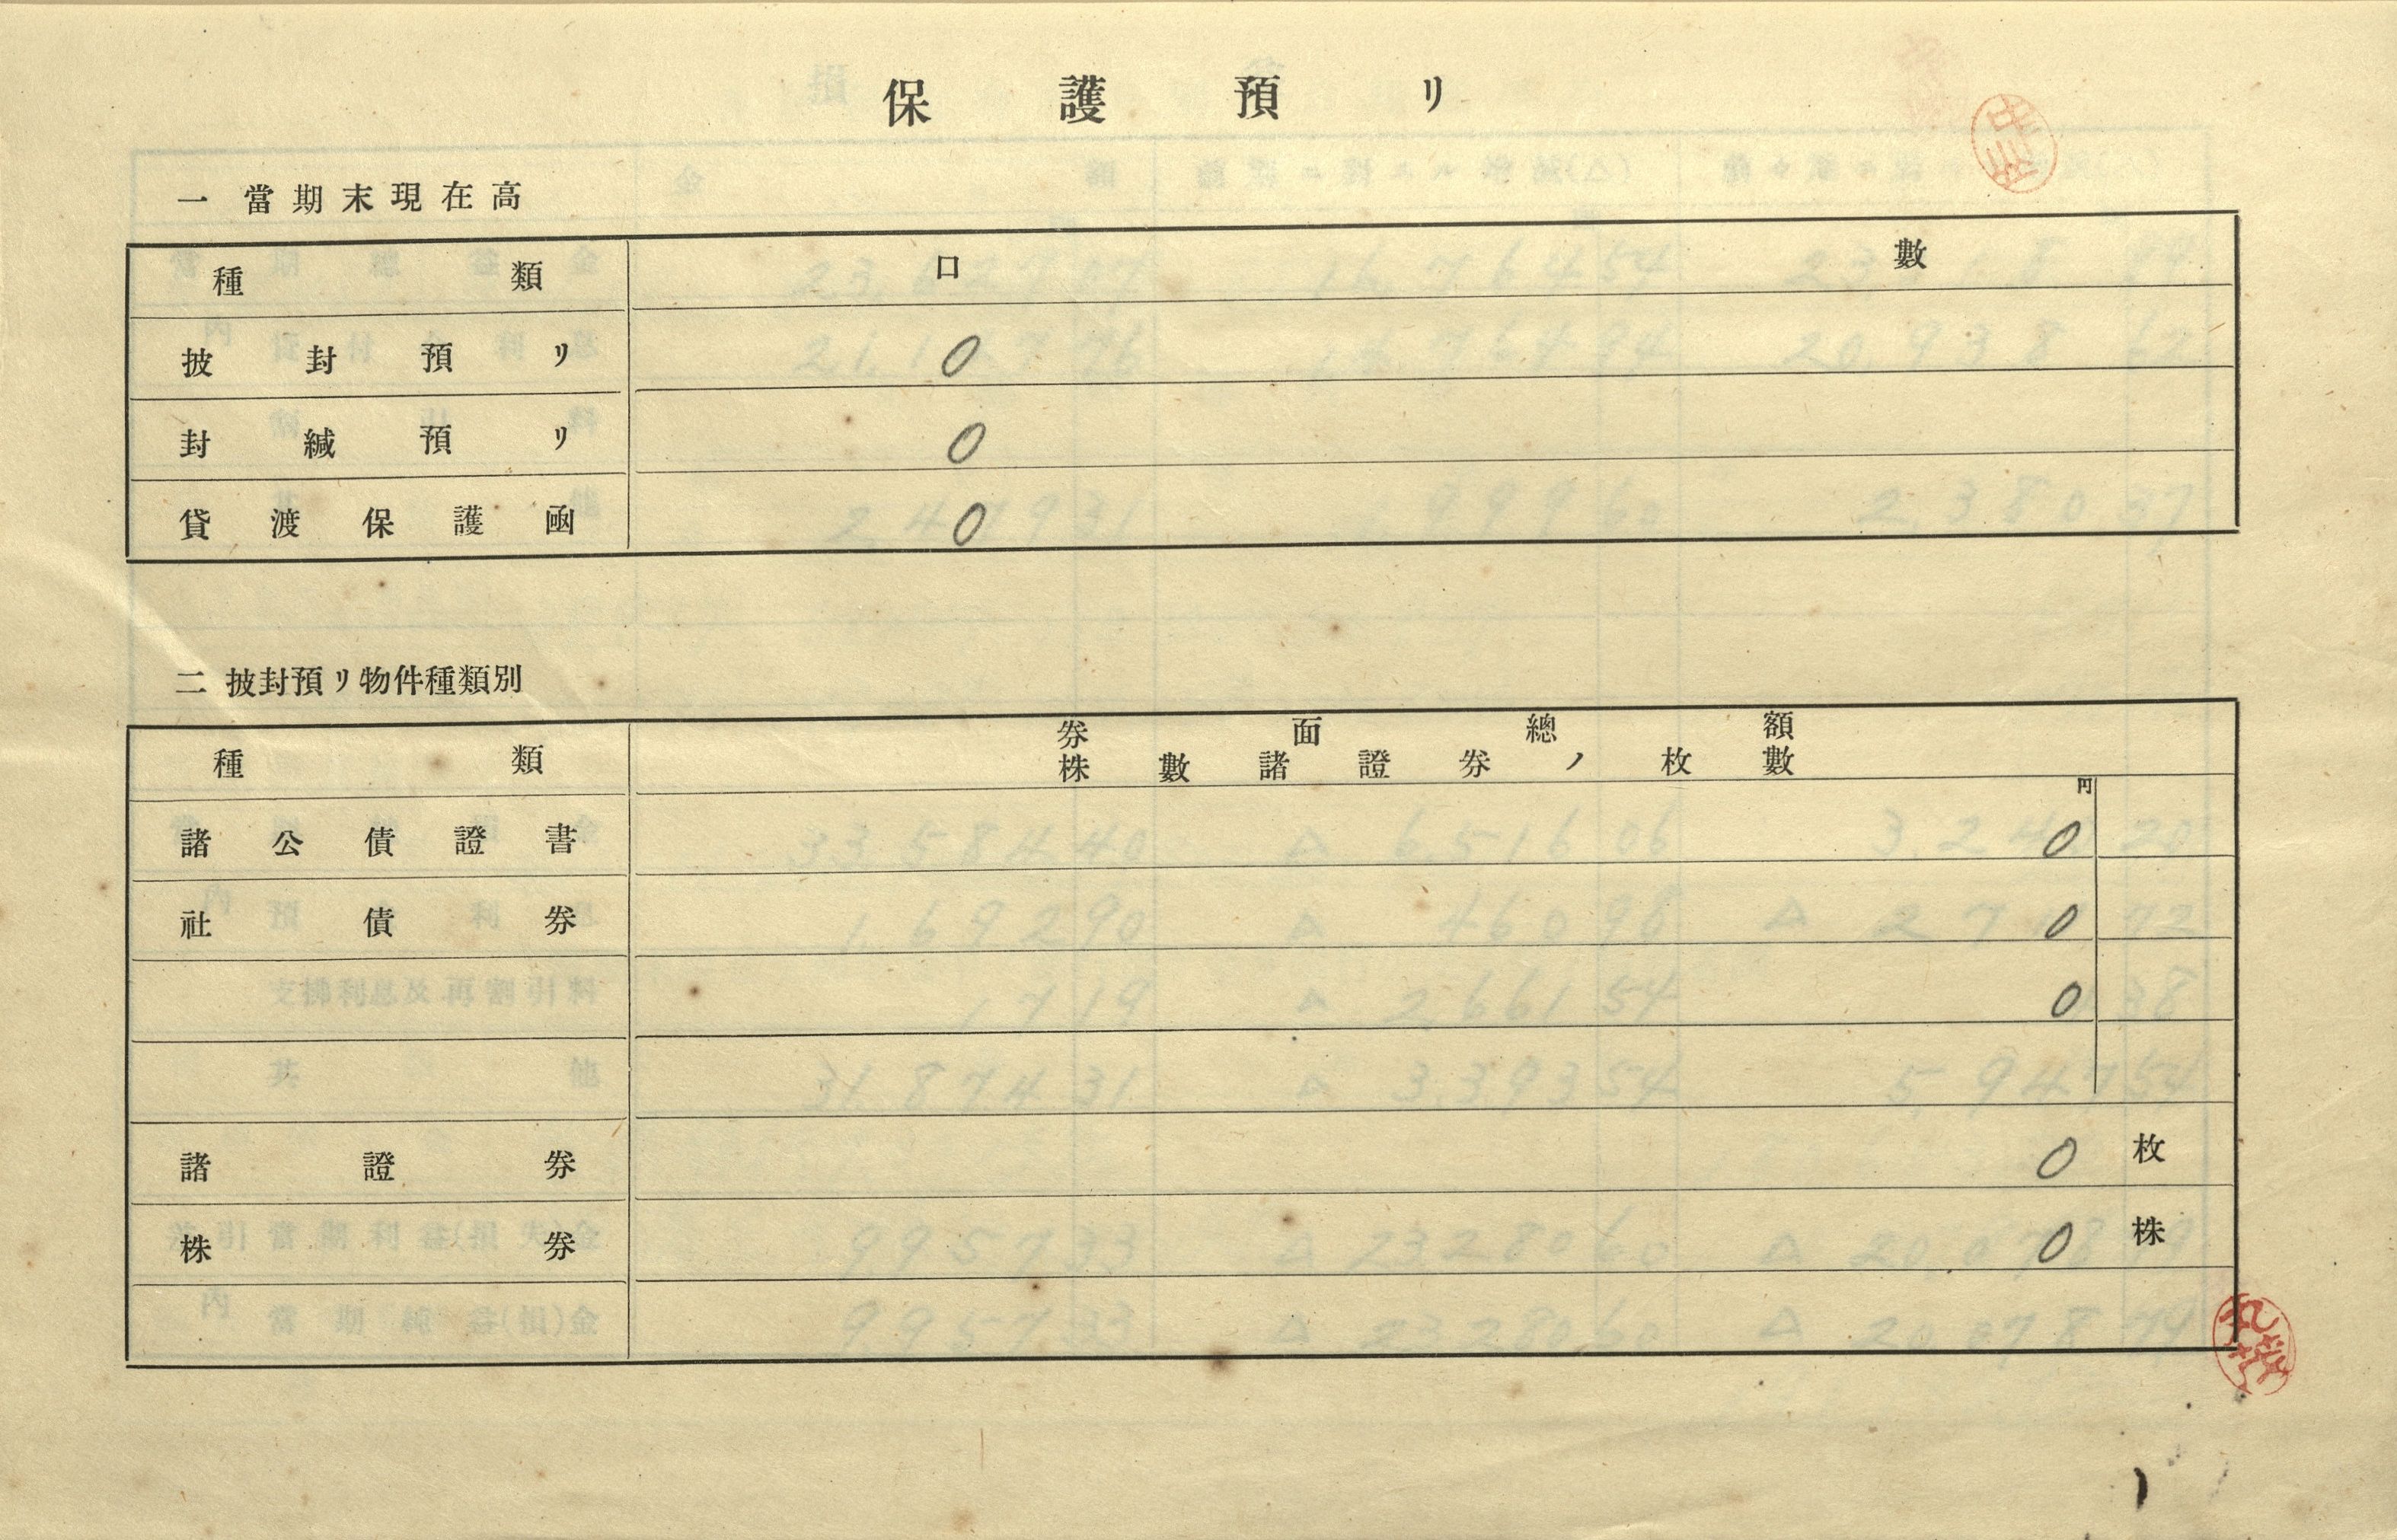 保護預リ
一 當期末現在高
種類 口數
披封預リ 0
封緘預リ 0
貸渡保護凾 0
二 披封預リ物件種類別
種類 券面總額
株數諸證券ノ枚數
円
諸公債證書 0
社債券 0
0
諸證券 0 枚
株券 0 株